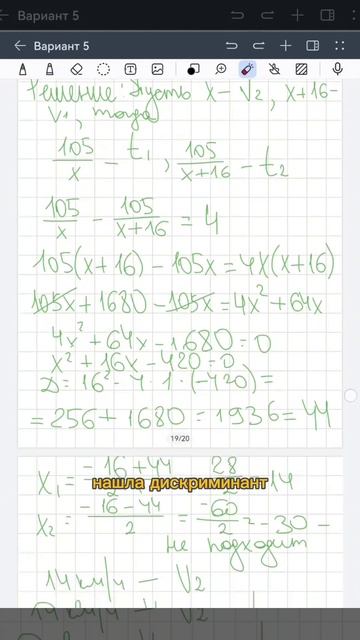 Вариант 5
Вариант 5
Решение: Пусть x – V2, x+16 –
V1, тогда
105/x – t1, 105/(x+16) – t2
105/x – 105/(x+16) = 4
105(x+16) – 105x = 4x(x+16)
105x + 1680 – 105x = 4x² + 64x
4x² + 64x – 1680 = 0
x² + 16x – 420 = 0
D = 16² – 4 · 1 · (–420) =
= 256 + 1680 = 1936 = 44
19/20
x1 = (–16 + 44)/2 = 28/2 = 14
нашла дискриминант
x2 = (–16 – 44)/2 = –60/2 = –30 –
не подходит
14 км/ч – V2